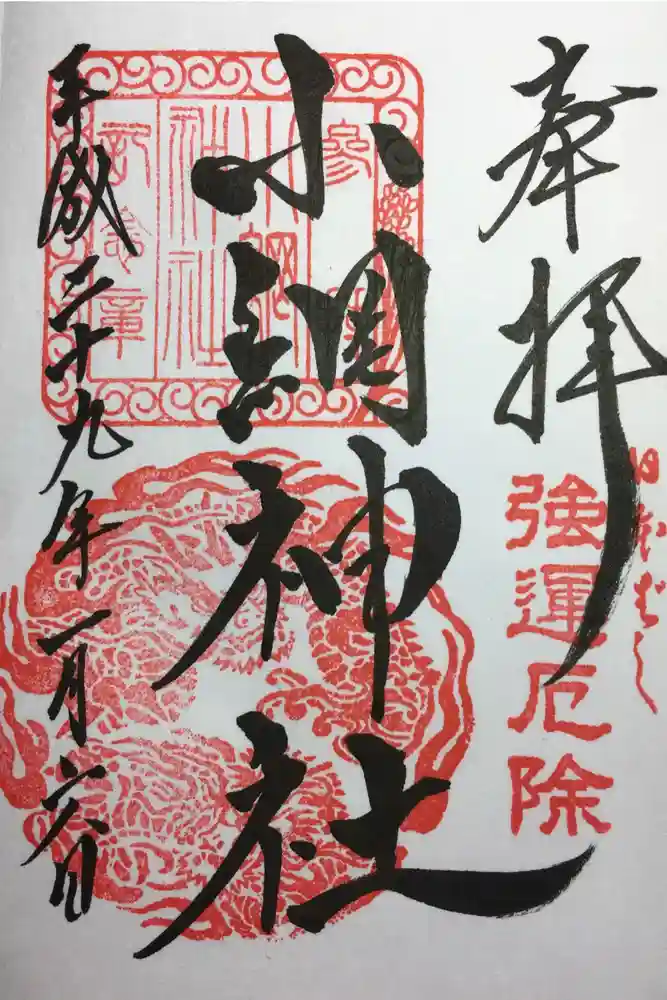 奉拝
日本ばし
強運厄除
小網神社
小網神社
記念章
平成二十九年一月六日